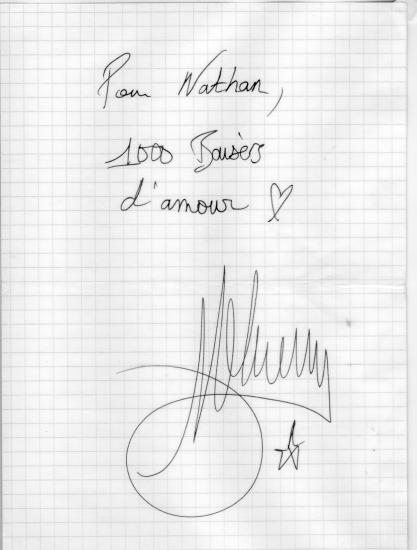 Pour Nathan,
1000 Baisers
d'amour